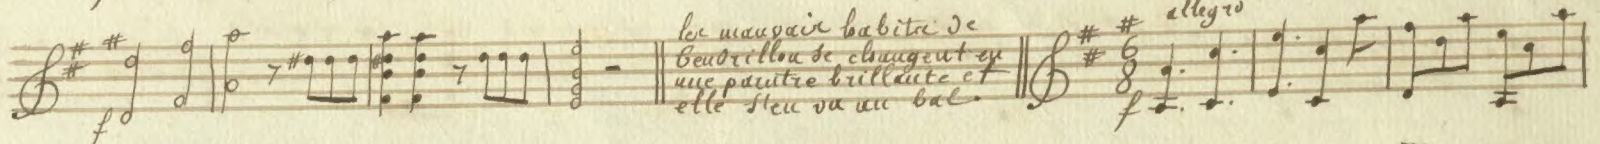 allegro
les mauvais habits de
Cendrillon se changent en
une parure brillante et
elle s'en va au bal.
6
8
f
f